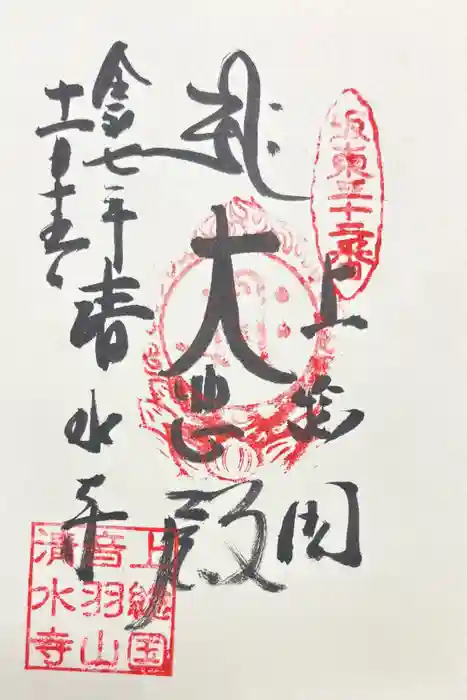 坂東三十二番
上総国
大悲殿
清水寺
令和七年
十一月十五日
上総国
音羽山
清水寺